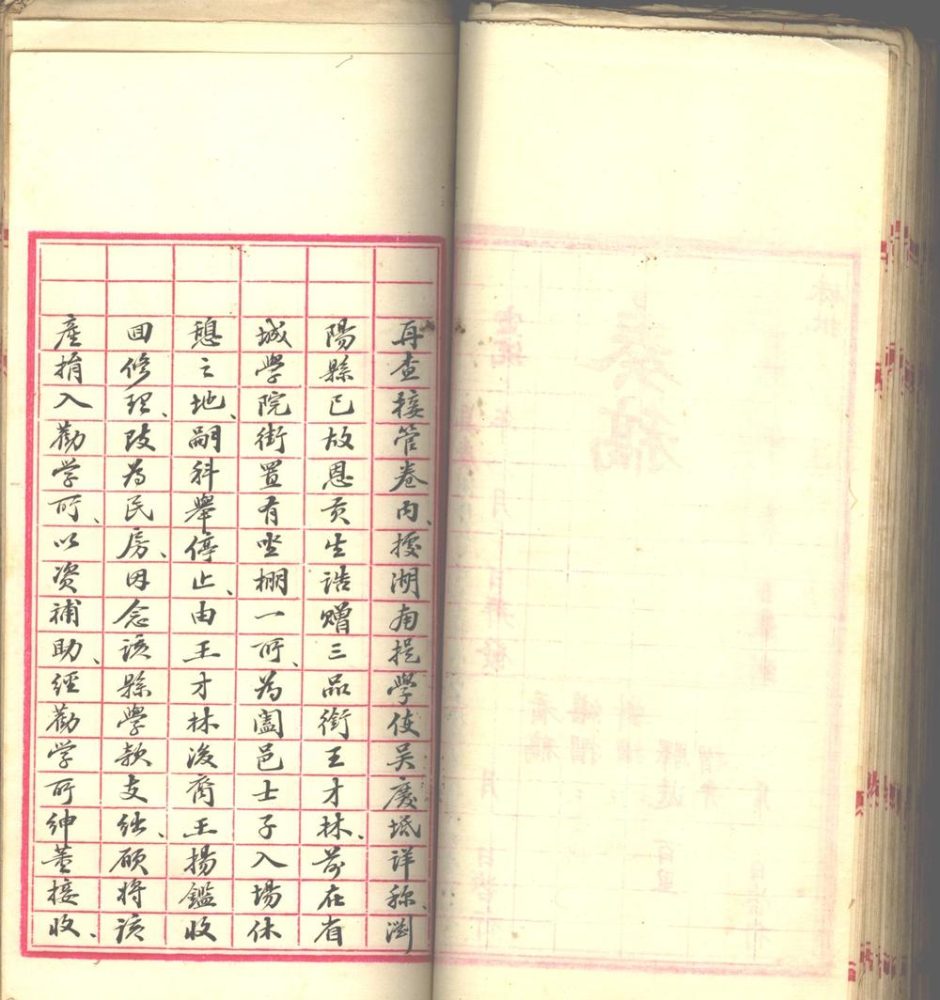 再查接管卷內、據湖南提學使吳慶坻詳称、瀏
陽縣已故恩貢生誥贈三品銜王才林、前在省
城學院街置有坐棚一所、為闔邑士子入場休
憩之地、嗣科舉停止、由王才林後裔王揚鑑收
回修理、改為民房、因念該縣學款支絀、願將該
產捐入勸学所、以资補助、經勸学所紳董接收、
奏稿